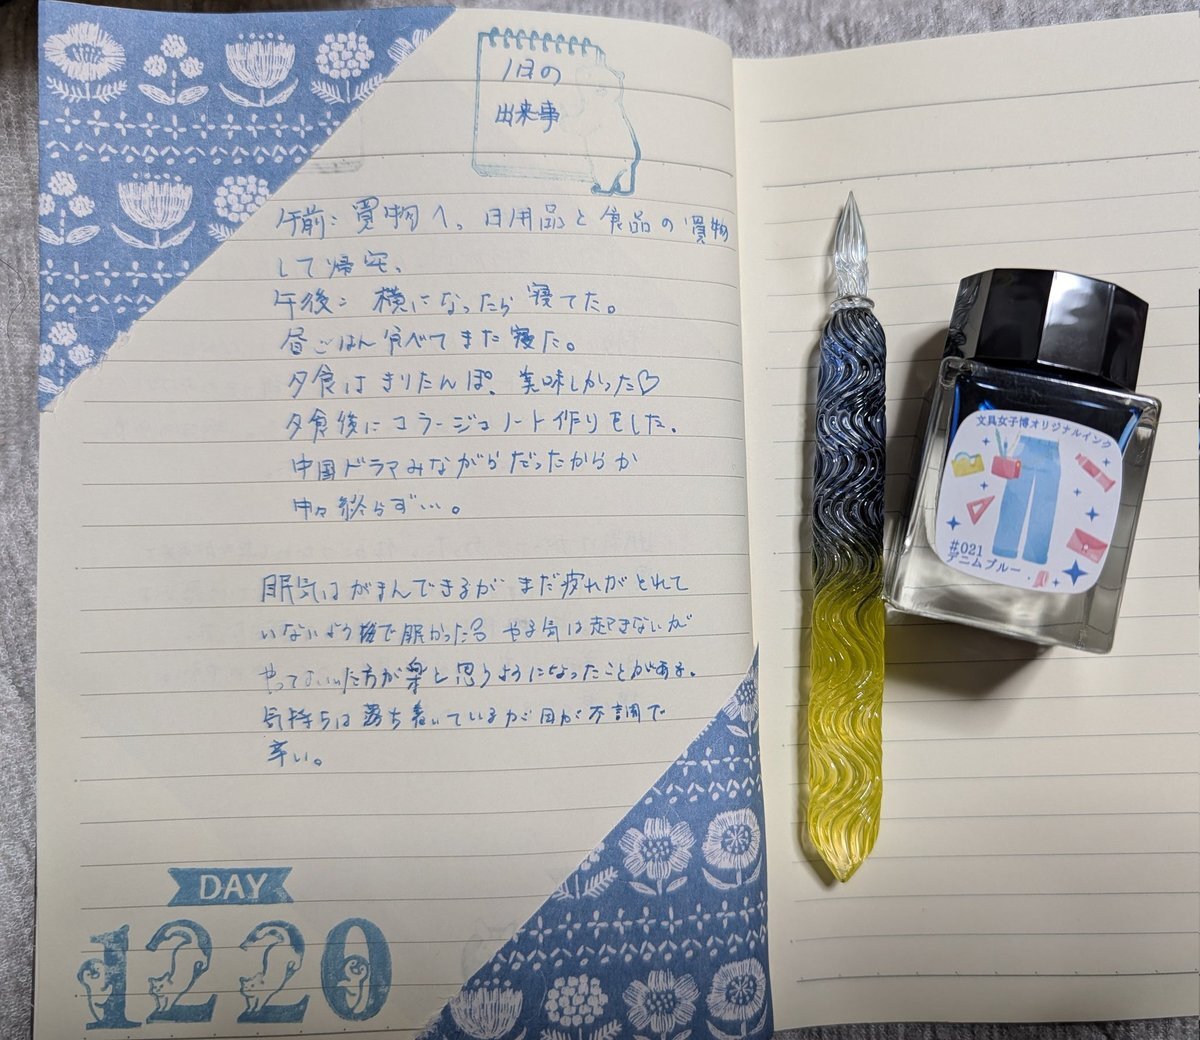 1日の
出来事
午前:買物へ。日用品と食品の買物
して帰宅、
午後:横になったら寝てた。
昼ごはん食べてまた寝た。
夕食はきりたんぽ。美味しかった♡
夕食後にコラージュノート作りをした。
中国ドラマみながらだったからか
中々終らず…。
眠気はがまんできるがまだ疲れがとれて
いないよう
やる気は起きないが
やって
方が楽と思うようになったことがある。
気持ちは落ち着いているが目が不調で
辛い。
DAY
1220
文具女子博オリジナルインク
#021
デニムブルー